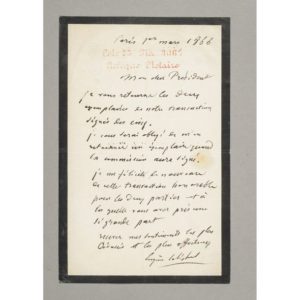 Paris 1er mars 1866
Mon cher Président
je vous retourne les deux
exemplaires de notre transaction
signés des cinq.
je vous serai obligé de m'en
retourner un exemplaire quand
la commission aura signé.
je me félicite de nouveau
de cette transaction honorable
pour les deux parties et à
laquelle vous avez pris une
si grande part
recevez mes sentiments les plus
et les plus affectueux
Eugène